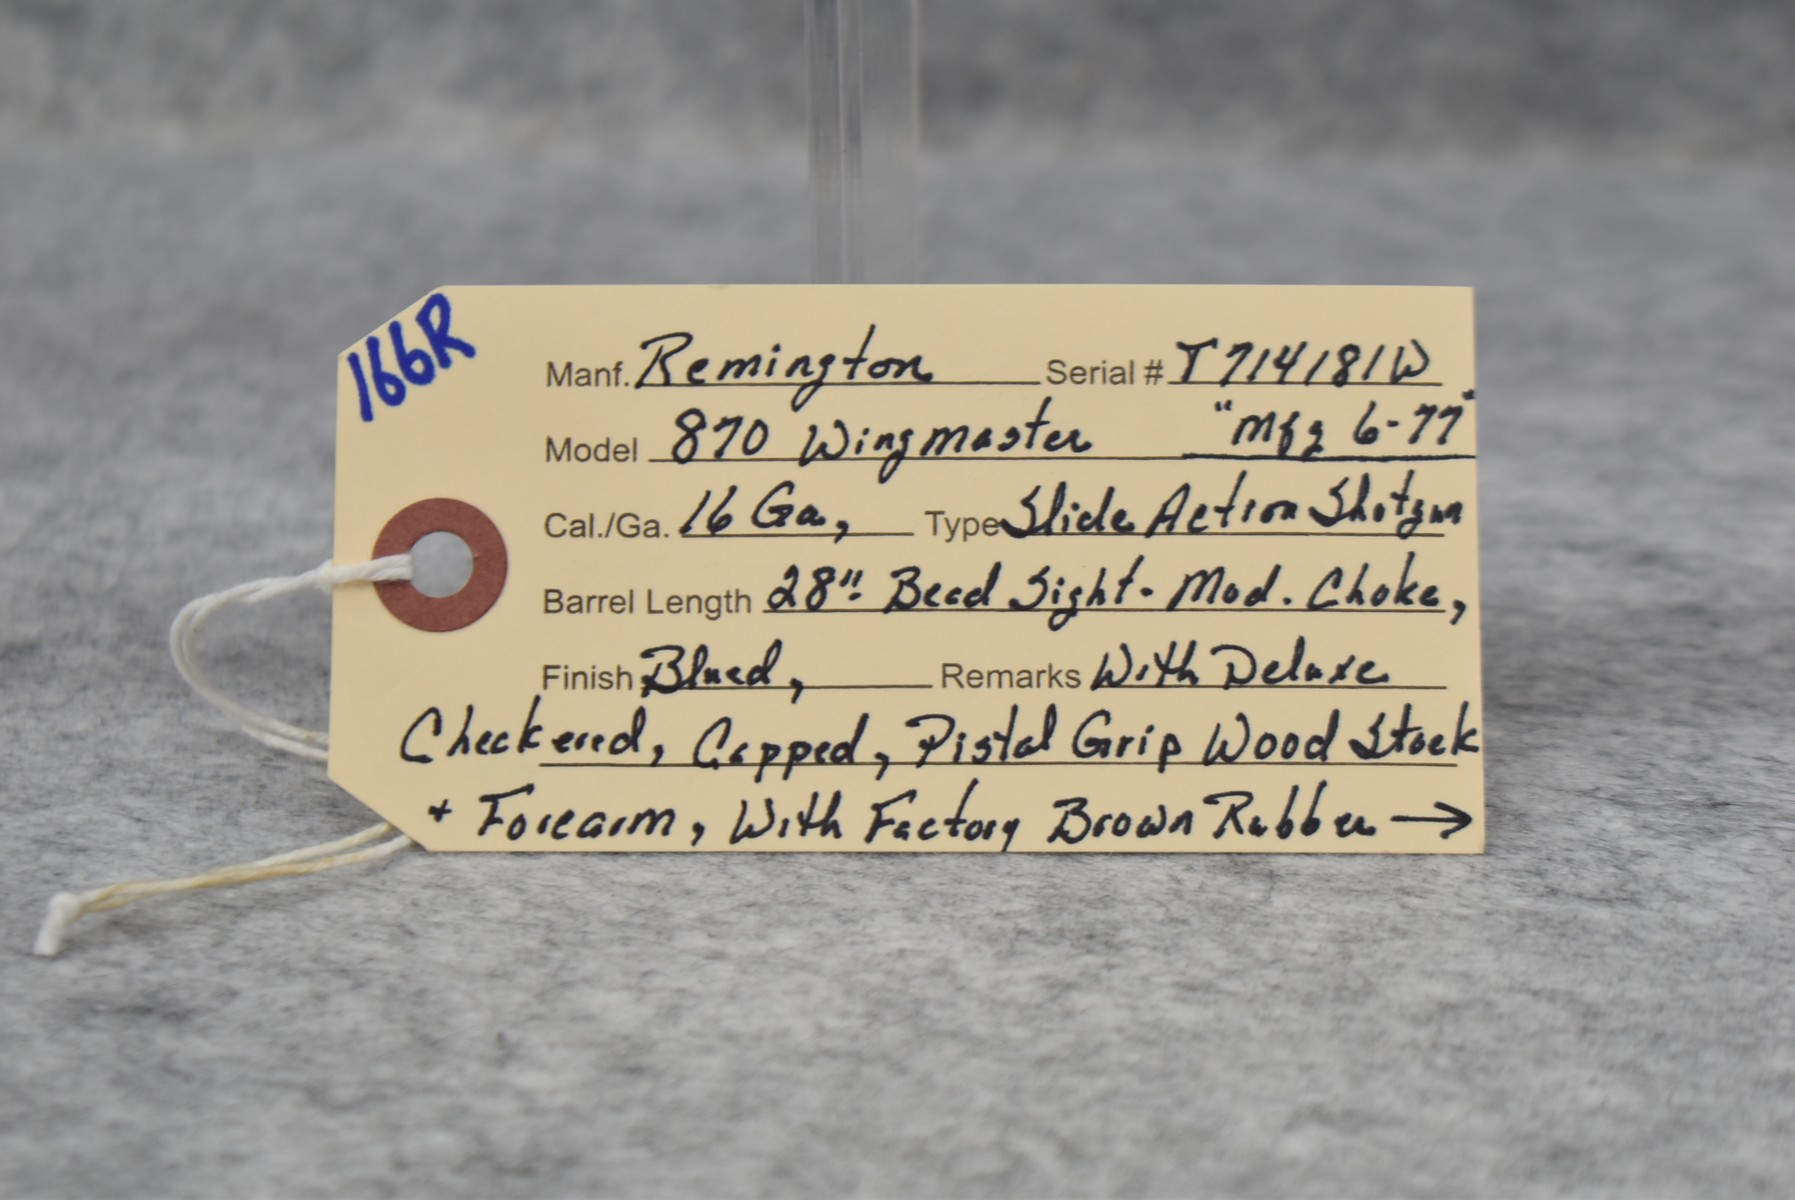 166R
Manf. Remington Serial # T714181W
Model 870 Wingmaster "Mfg 6-77"
Cal./Ga. 16 Ga, Type Slide Action Shotgun
Barrel Length 28". Bead Sight. Mod. Choke,
Finish Blued, Remarks With Deluxe
Checkered, Capped, Pistol Grip Wood Stock
+ Forearm, With Factory Brown Rubber →